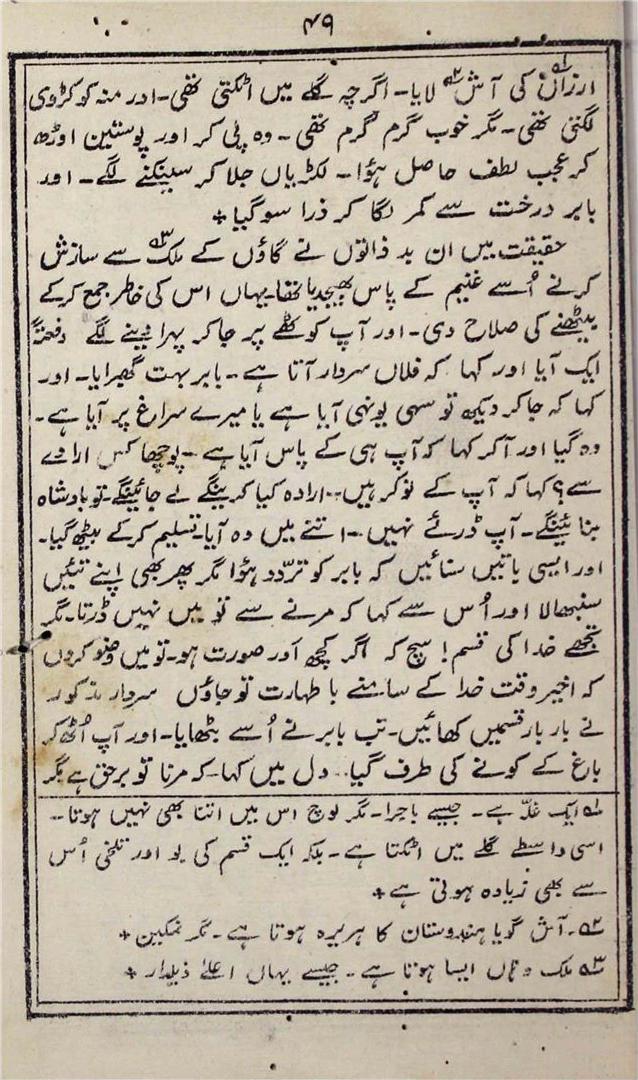 ۴۹
ارزاں۱؎ کی آش۲؎ لایا۔ اگرچہ گلے میں اٹکتی تھی۔ اور منہ کو کڑوی
لگتی تھی۔ مگر خوب گرم گرم تھی۔ وہ پی کر اور پوستین اوڑھ
کر عجب لطف حاصل ہؤا۔ لکڑیاں جلا کر سینکنے لگے۔ اور
بابر درخت سے کمر لگا کر ذرا سو گیا +
حقیقت میں ان بد ذاتوں نے گاؤں کے ملک۳؎ سے سازش
کرنے اُسے غنیم کے پاس بھیجدیا تھا۔ یہاں اس کی خاطر جمع کر کے
بیٹھنے کی صلاح دی۔ اور آپ کوٹھے پر جا کر پہرا دینے لگے دفعتہً
ایک آیا اور کہا کہ فلاں سردار آتا ہے۔ بابر بہت گھبرایا۔ اور
کہا کہ جا کر دیکھ تو سہی یونہی آیا ہے یا میرے سراغ پر آیا ہے۔
وہ گیا اور آ کر کہا کہ آپ ہی کے پاس آیا ہے۔ پوچھا کس ارادے
سے؟ کہا کہ آپ کے نوکر ہیں۔ ارادہ کیا کرینگے لے جائینگے۔ تو بادشاہ
بنائینگے۔ آپ ڈرئے نہیں۔ اتنے میں وہ آیا۔ تسلیم کر کے بیٹھ گیا۔
اور ایسی باتیں سنائیں کہ بابر کو تردّد ہؤا مگر پھر بھی اپنے تئیں
سنبھالا اور اُس سے کہا کہ مرنے سے تو میں نہیں ڈرتا۔ مگر
تجھے خدا کی قسم! سچ کہ اگر کچھ اَور صورت ہو۔ تو میں وضو کروں
کہ اخیر وقت خدا کے سامنے با طہارت تو جاؤں سردار مذکور
نے بار بار قسمیں کھائیں۔ تب بابر نے اُسے بٹھایا۔ اور آپ اُٹھ کر
باغ کے کونے کی طرف گیا۔ دل میں کہا۔ کہ مرنا تو برحق ہے مگر
۱؎ ایک غلّہ ہے۔ جیسے باجرا۔ مگر لوچ اس میں اتنا بھی نہیں ہوتا۔
اسی واسطے گلے میں اٹکتا ہے۔ بلکہ ایک قسم کی بو اور تلخی اُس
سے بھی زیادہ ہوتی ہے +
۲؎۔ آش گویا ہندوستان کا ہریرہ ہوتا ہے۔ مگر نمکین +
۳؎ ملک وہاں ایسا ہوتا ہے۔ جیسے یہاں اعلےٰ ذیلدار +